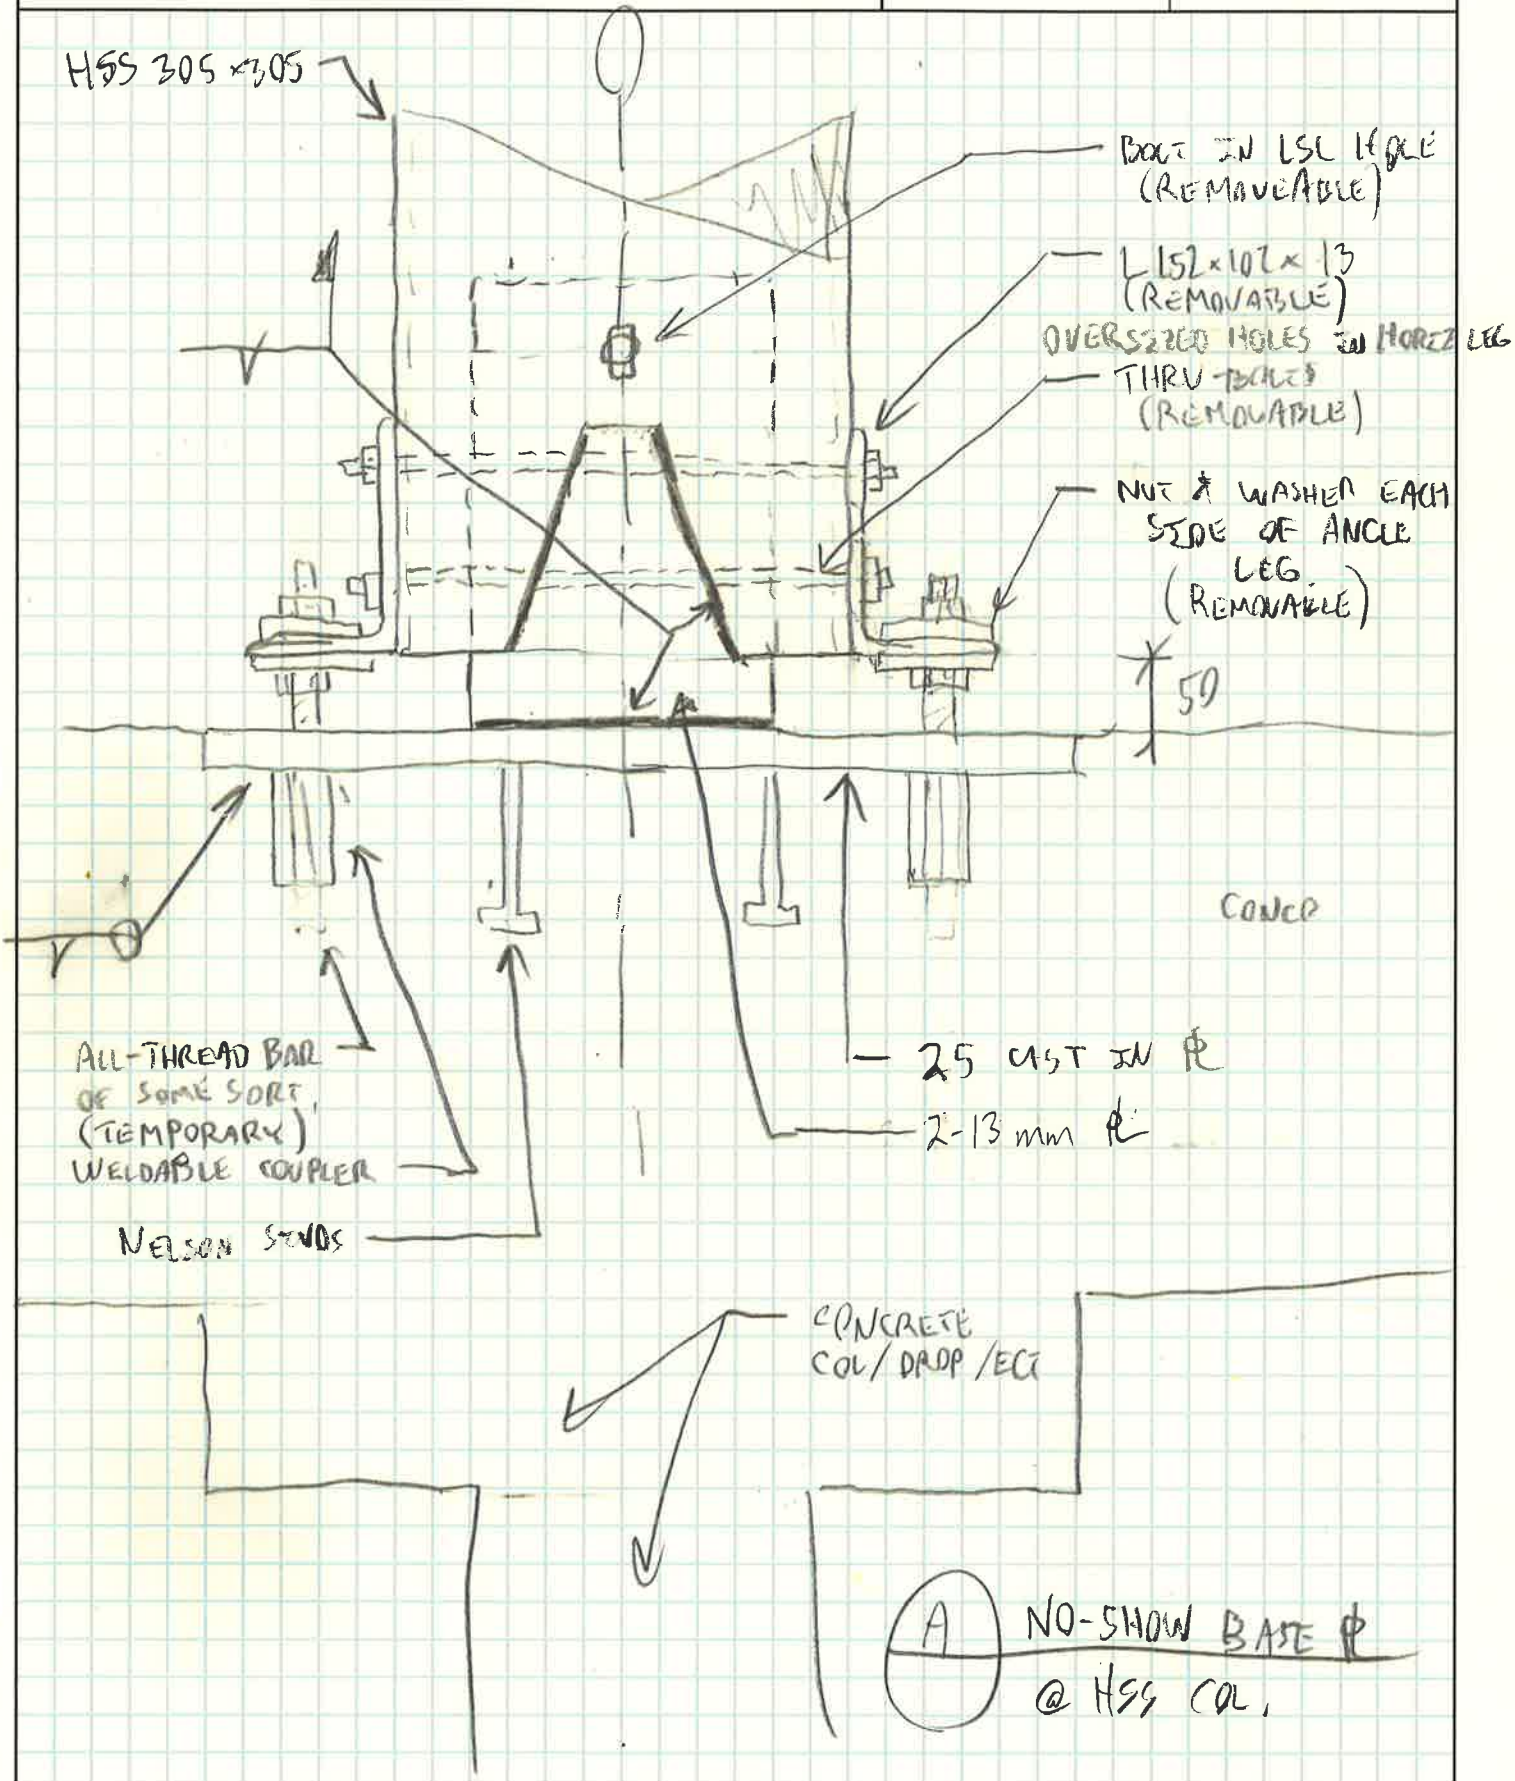 HSS 305 x305
BOLT IN LSL HOLE
(REMOVEABLE)
L 152x102x 13
(REMOVABLE)
OVERSIZED HOLES IN HORIZ LEG
THRU-BOLTS
(REMOVABLE)
NUT & WASHER EACH
SIDE OF ANGLE
LEG.
(REMOVABLE)
50
CONCR
ALL-THREAD BAR
OF SOME SORT.
(TEMPORARY)
WELDABLE COUPLER
NELSON STUDS
25 CAST IN PL
2-13 mm PL
CONCRETE
COL/DROP/ECT
A
NO-SHOW BASE PL
@ HSS COL.